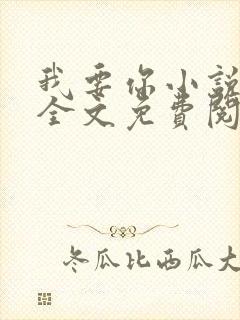 我要你小說
全文免費閱
冬瓜比西瓜大